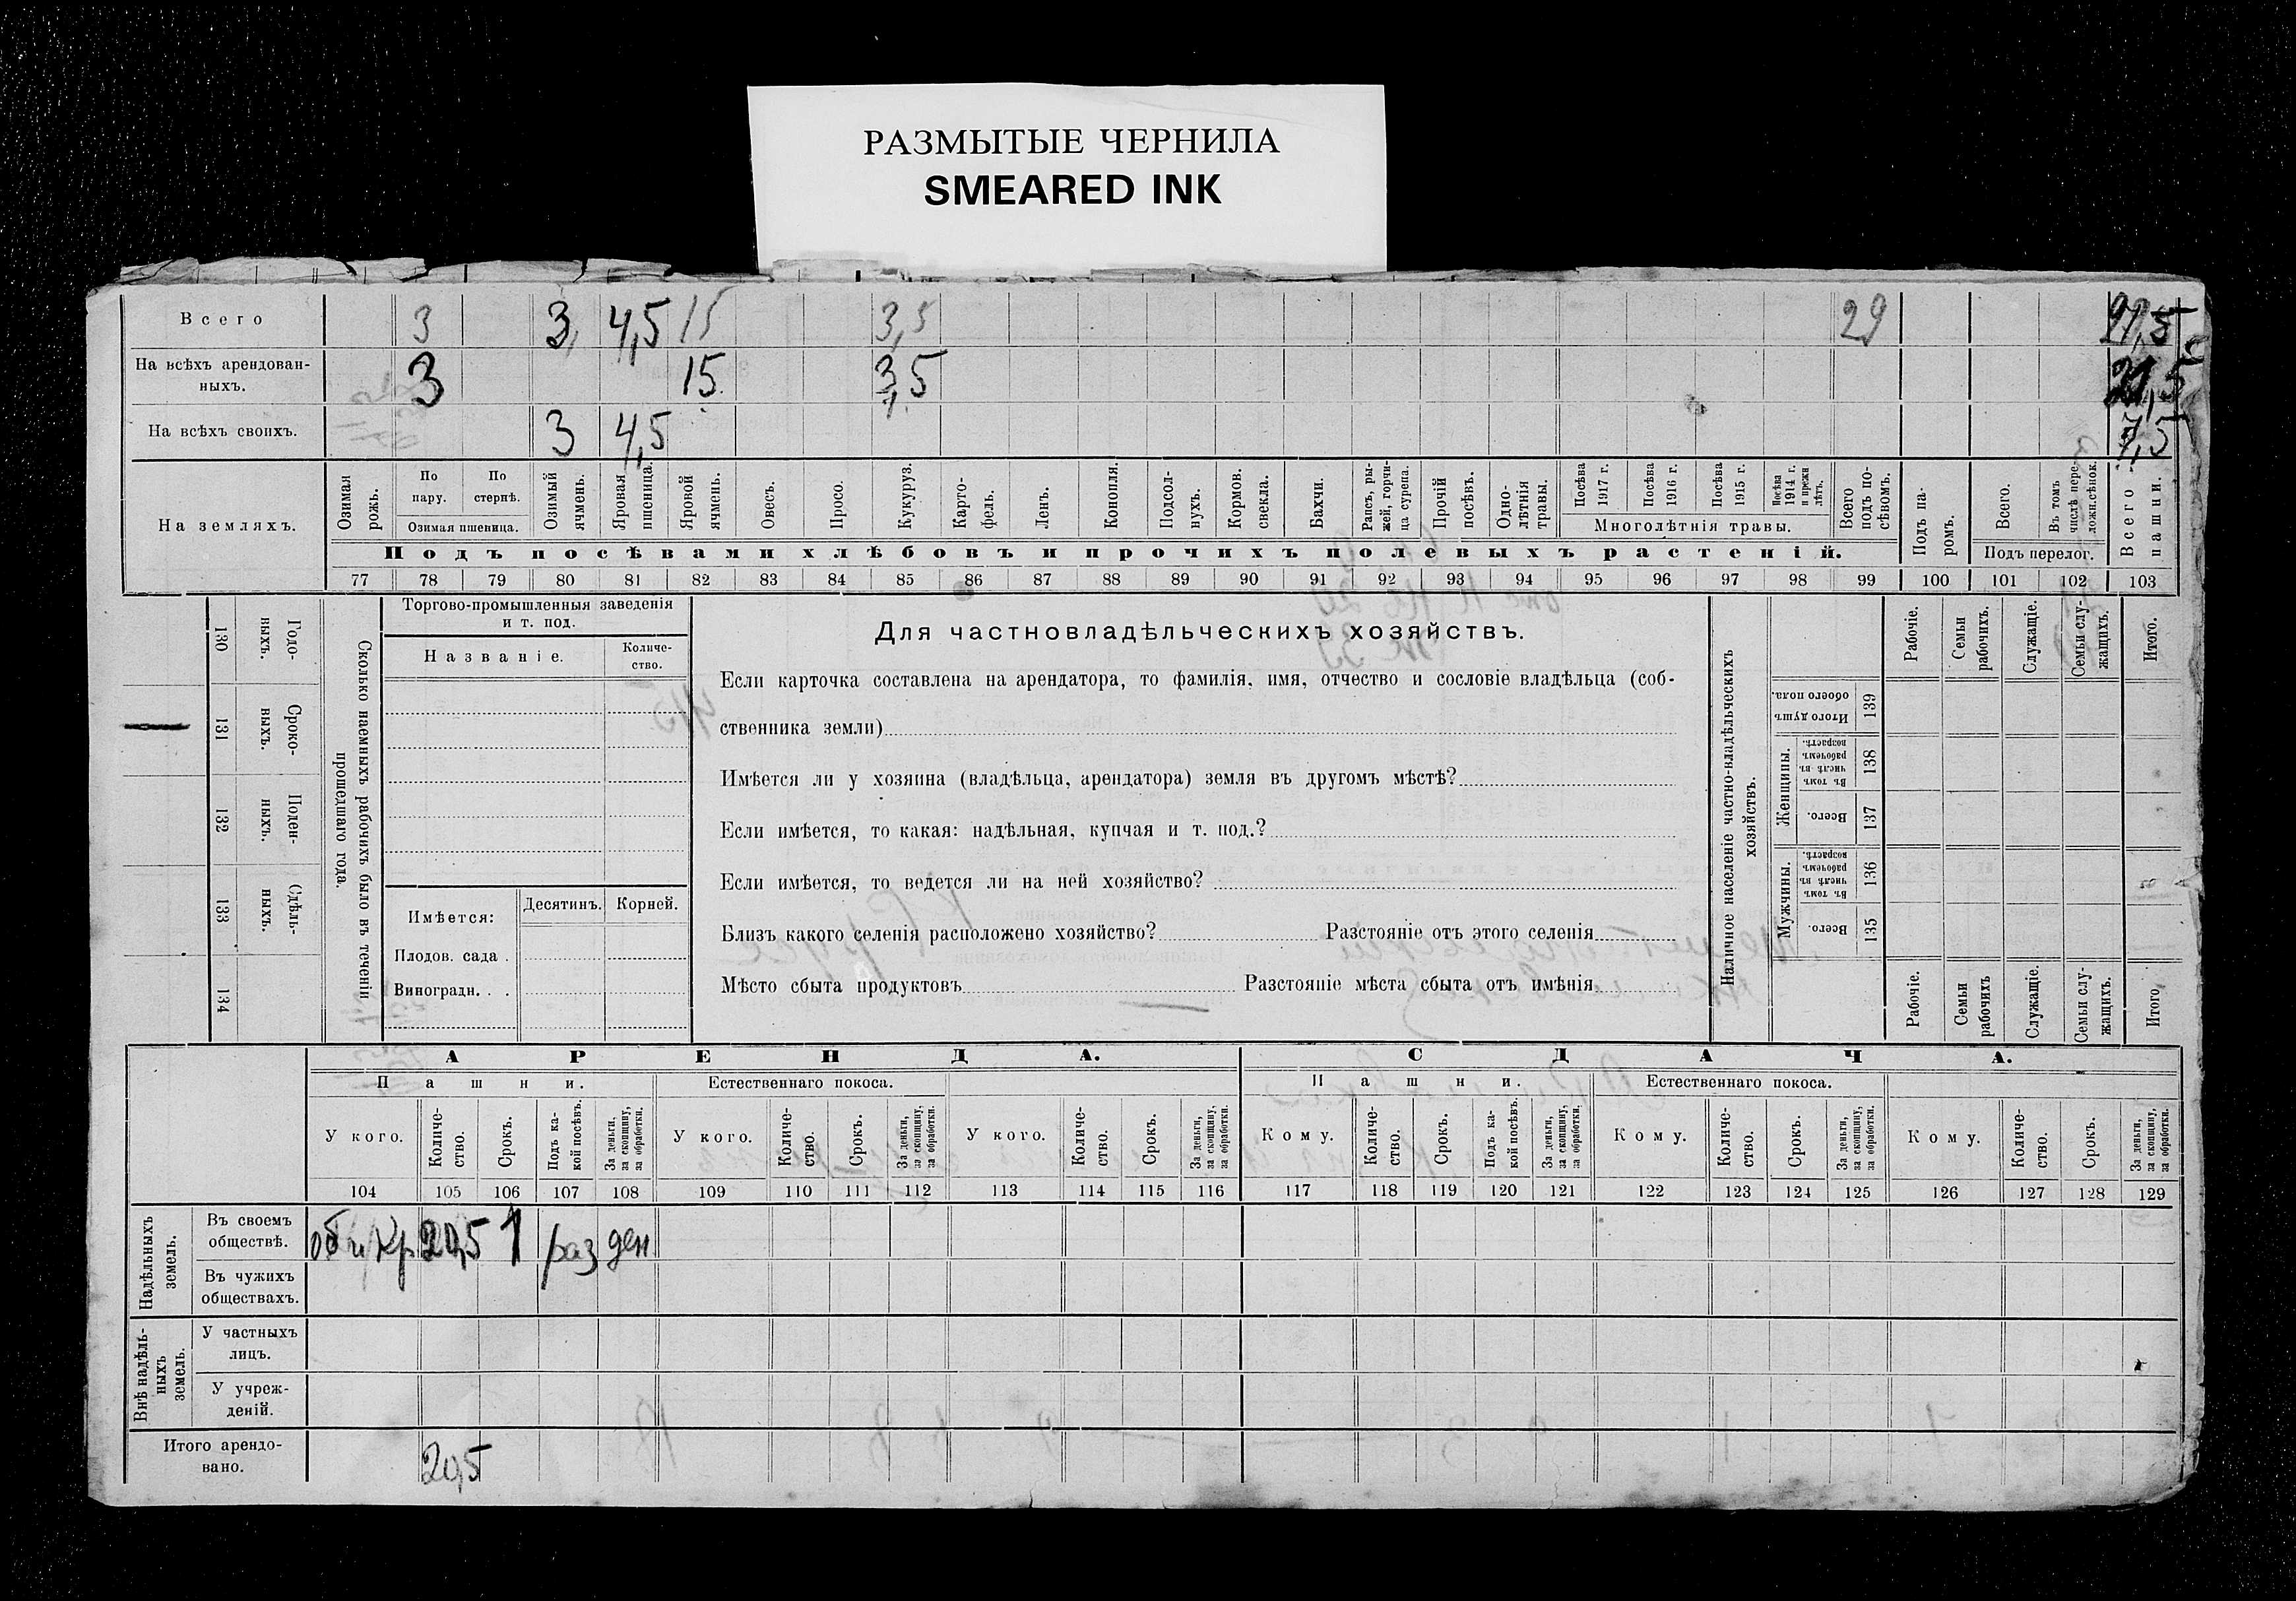 РАЗМЫТЫЕ ЧЕРНИЛА
SMEARED INK
Всего 3 3 4,5 15 3,5 29
На всѣхъ арендован-
ныхъ. 3 15 3,5 21,5
На всѣхъ своихъ. 3 4,5 7,5
На земляхъ.
Озимая рожь.
По пару.
По стернѣ.
Озимая пшеница.
Озимый ячмень.
Яровая пшеница.
Яровой ячмень.
Овесъ.
Просо.
Кукуруз.
Карто-
фель.
Ленъ.
Конопля.
Подсол-
нухъ.
Кормов. свекла.
Бахчи.
Рапсъ, ры-
жей, горчи-
ца сурепа.
Прочій посѣвъ.
Одно-
лѣтнія травы.
Посѣва 1917 г.
Посѣва 1916 г.
Посѣва 1915 г.
Посѣва 1914 г. и прежн лѣтъ.
Многолѣтнія травы.
Всего подъ по-
сѣвомъ.
Подъ па-
ромъ.
Всего.
Въ томъ числѣ пере-
ложн.сѣнок.
Подъ перелог.
Всего пашни.
Подъ посѣвами хлѣбовъ и прочихъ полевыхъ растеній.
77 78 79 80 81 82 83 84 85 86 87 88 89 90 91 92 93 94 95 96 97 98 99 100 101 102 103
130 Годо-
выхъ.
131 Сроко-
выхъ.
132 Поден-
ныхъ.
133 Сдѣль-
ныхъ.
134
Сколько наемныхъ рабочихъ было въ теченіи
прошедшаго года.
Торгово-промышленныя заведенія
и т. под.
Названіе.
Количе-
ство.
Имѣется:
Десятинъ. Корней.
Плодов. сада .
Виноградн. . .
Для частновладѣльческихъ хозяйствъ.
Если карточка составлена на арендатора, то фамилія, имя, отчество и сословіе владѣльца (соб-
ственника земли)
Имѣется ли у хозяина (владѣльца, арендатора) земля въ другомъ мѣстѣ?
Если имѣется, то какая: надѣльная, купчая и т. под.?
Если имѣется, то ведется ли на ней хозяйство?
Близъ какого селенія расположено хозяйство? Разстояніе отъ этого селенія
Мѣсто сбыта продуктовъ Разстояніе мѣста сбыта отъ имѣнія
Наличное населеніе частно-владѣльческихъ
хозяйствъ.
Рабочіе.
Семьи рабочихъ.
Служащіе.
Семьи слу-
жащихъ.
Итого.
Итого душъ обоего пола. 139
Женщины.
Въ томъ числѣ въ рабочемъ возрастѣ. 138
Всего. 137
Мужчины.
Въ томъ числѣ въ рабочемъ возрастѣ. 136
Всего. 135
Рабочіе.
Семьи рабочихъ
Служащіе.
Семьи слу-
жащихъ.
Итого.
АРЕНДА. СДАЧА.
Пашни. Естественнаго покоса. Пашни. Естественнаго покоса.
У кого.
Количе-
ство.
Срокъ.
Подъ ка-
кой посѣвъ.
За деньги, за скопщину, за обработки.
У кого.
Количе-
ство.
Срокъ.
За деньги, за скопщину, за обработки.
У кого.
Количе-
ство.
Срокъ.
За деньги, за скопщину, за обработки.
Кому.
Количе-
ство.
Срокъ.
Подъ ка-
кой посѣвъ.
За деньги, за скопщину, за обработки.
Кому.
Количе-
ство.
Срокъ.
За деньги, за скопщину, за обработки.
Кому.
Количе-
ство.
Срокъ.
За деньги, за скопщину, за обработки.
104 105 106 107 108 109 110 111 112 113 114 115 116 117 118 119 120 121 122 123 124 125 126 127 128 129
Надѣльныхъ земель.
Въ своемъ
обществѣ. 1 раз ден
Въ чужихъ
обществахъ.
Внѣ надѣль-
ныхъ земель.
У частныхъ
лицъ.
У учреж-
деній.
Итого арендо-
вано. 20,5